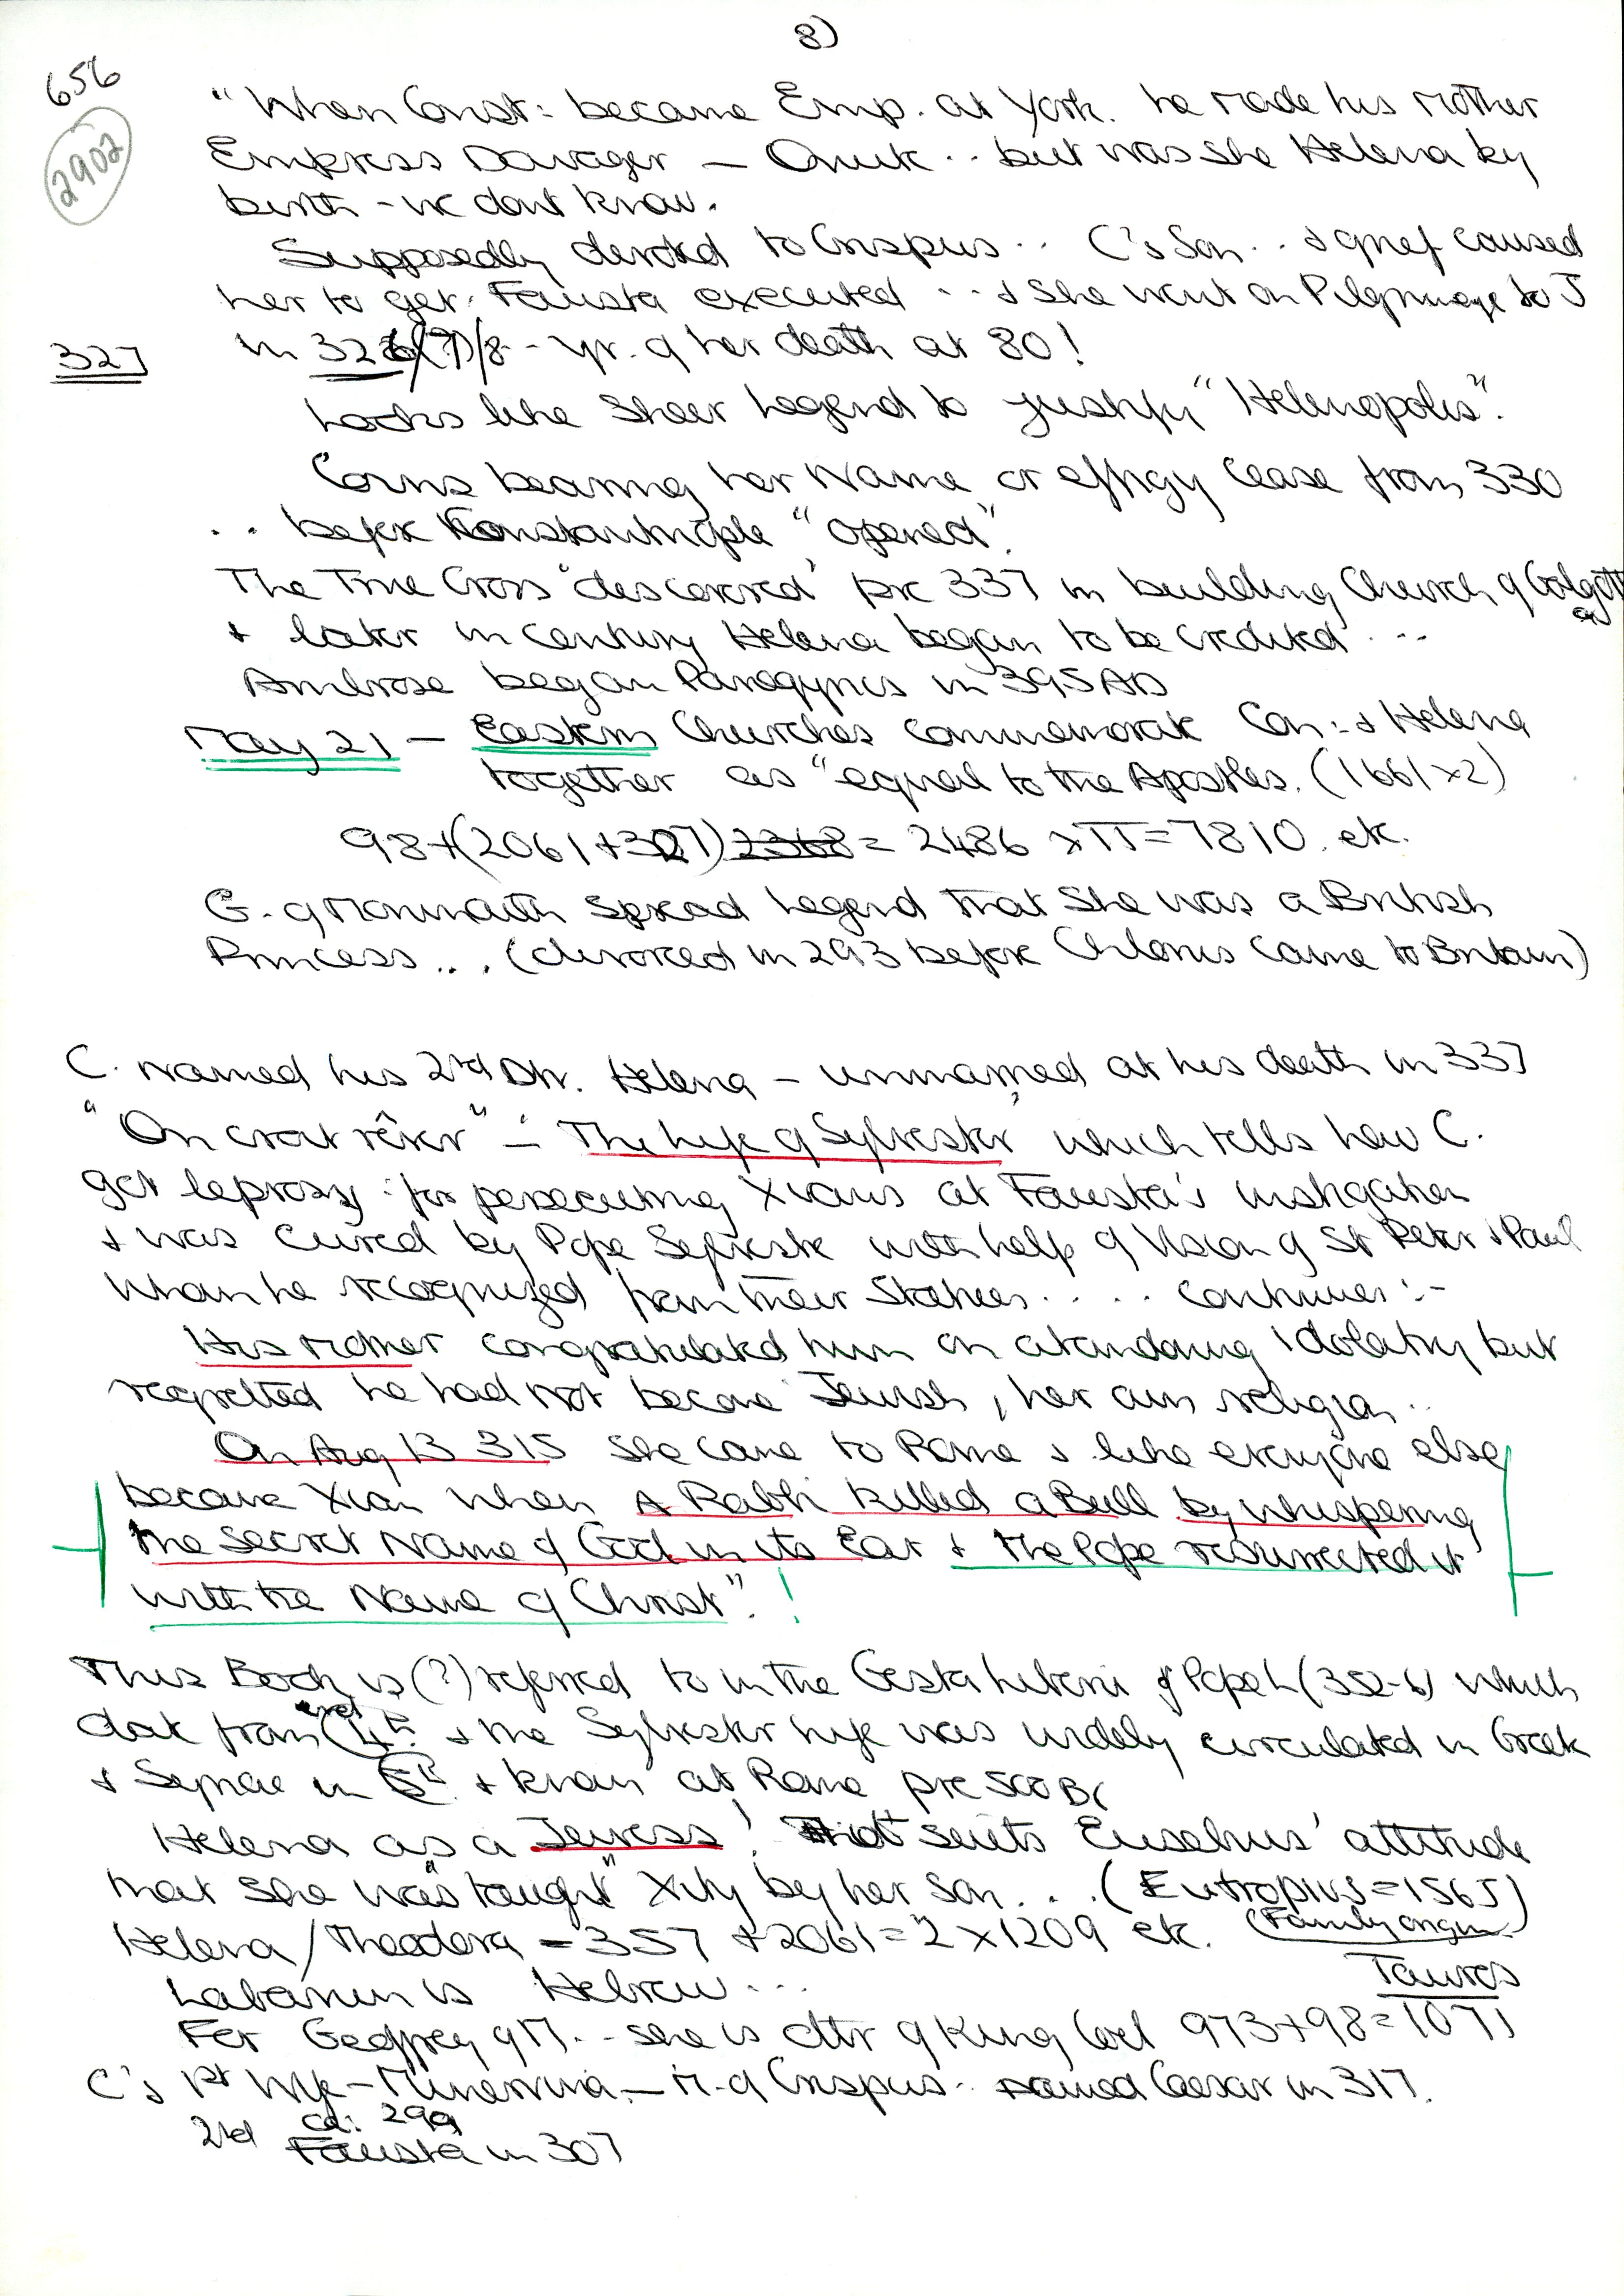 8)
656
2902
"When Const: became Emp. at York. he made his mother
Empress Dowager – Quite .. but was she Helena by
birth – we dont know.
Supposedly devoted to Crispus .. C's Son .. & grief caused
her to get Fausta executed ... & she went on Pilgrimage to J
327 in 326/(7)/8 -- yr. of her death at 80!
Looks like sheer Legend to justify "Helenopolis".
Coins bearing her Name or effigy cease from 330
.. before Konstantinople "opened".
The True Cross 'discovered' pre 337 in building Church of Golgotha
& later in century Helena began to be credited ...
Ambrose began Panegyrics in 395 AD
May 21 – Eastern Churches commemorate Con: & Helena
together as "equal to the Apostles. (1661 x 2)
98 + (2061 + 327) 2368 = 2486 x TT = 7810. etc.
G. of Monmouth spread Legend that she was a British
Princess ... (divorced in 293 before Chlorus came to Britain)
C. named his 2nd Dtr. Helena – unmarried at his death in 337
"On croit rêver" – 'The Life of Sylvester' which tells how C.
got leprosy for persecuting Xians at Fausta's instigation
& was cured by Pope Sylvester with help of Vision of St Peter & Paul
whom he recognized from their Statues .... continues :-
His mother congratulated him on abandoning idolatry but
regretted he had not become Jewish, her own religion ..
On Aug 13 315 she came to Rome & like everyone else
became Xian when A Rabbi killed a Bull by whispering
the Secret Name of God in its Ear & the Pope resurrected it
with the Name of Christ". !
This Book is (?) referred to in the Gesta Liberii of Pope L (352-6) which
date from end (4th & the Sylvester Life was widely circulated in Greek
& Syriac in 5th & known at Rome pre 500 BC
Helena as a Jewess! That suits Eusebius' attitude
that she was "taught" Xity by her son ... (Eutropius = 1565)
Helena / Theodora – 357 + 2061 = 2 x 1209 etc. (Family origin)
Labarum is Hebrew ...
Taurus
For Geoffrey of M. .. she is dtr of King Coel 973 + 98 = 1071
C's 1st Wife – Minervina – M. of Crispus .. named Caesar in 317.
ca: 299
2nd Fausta in 307